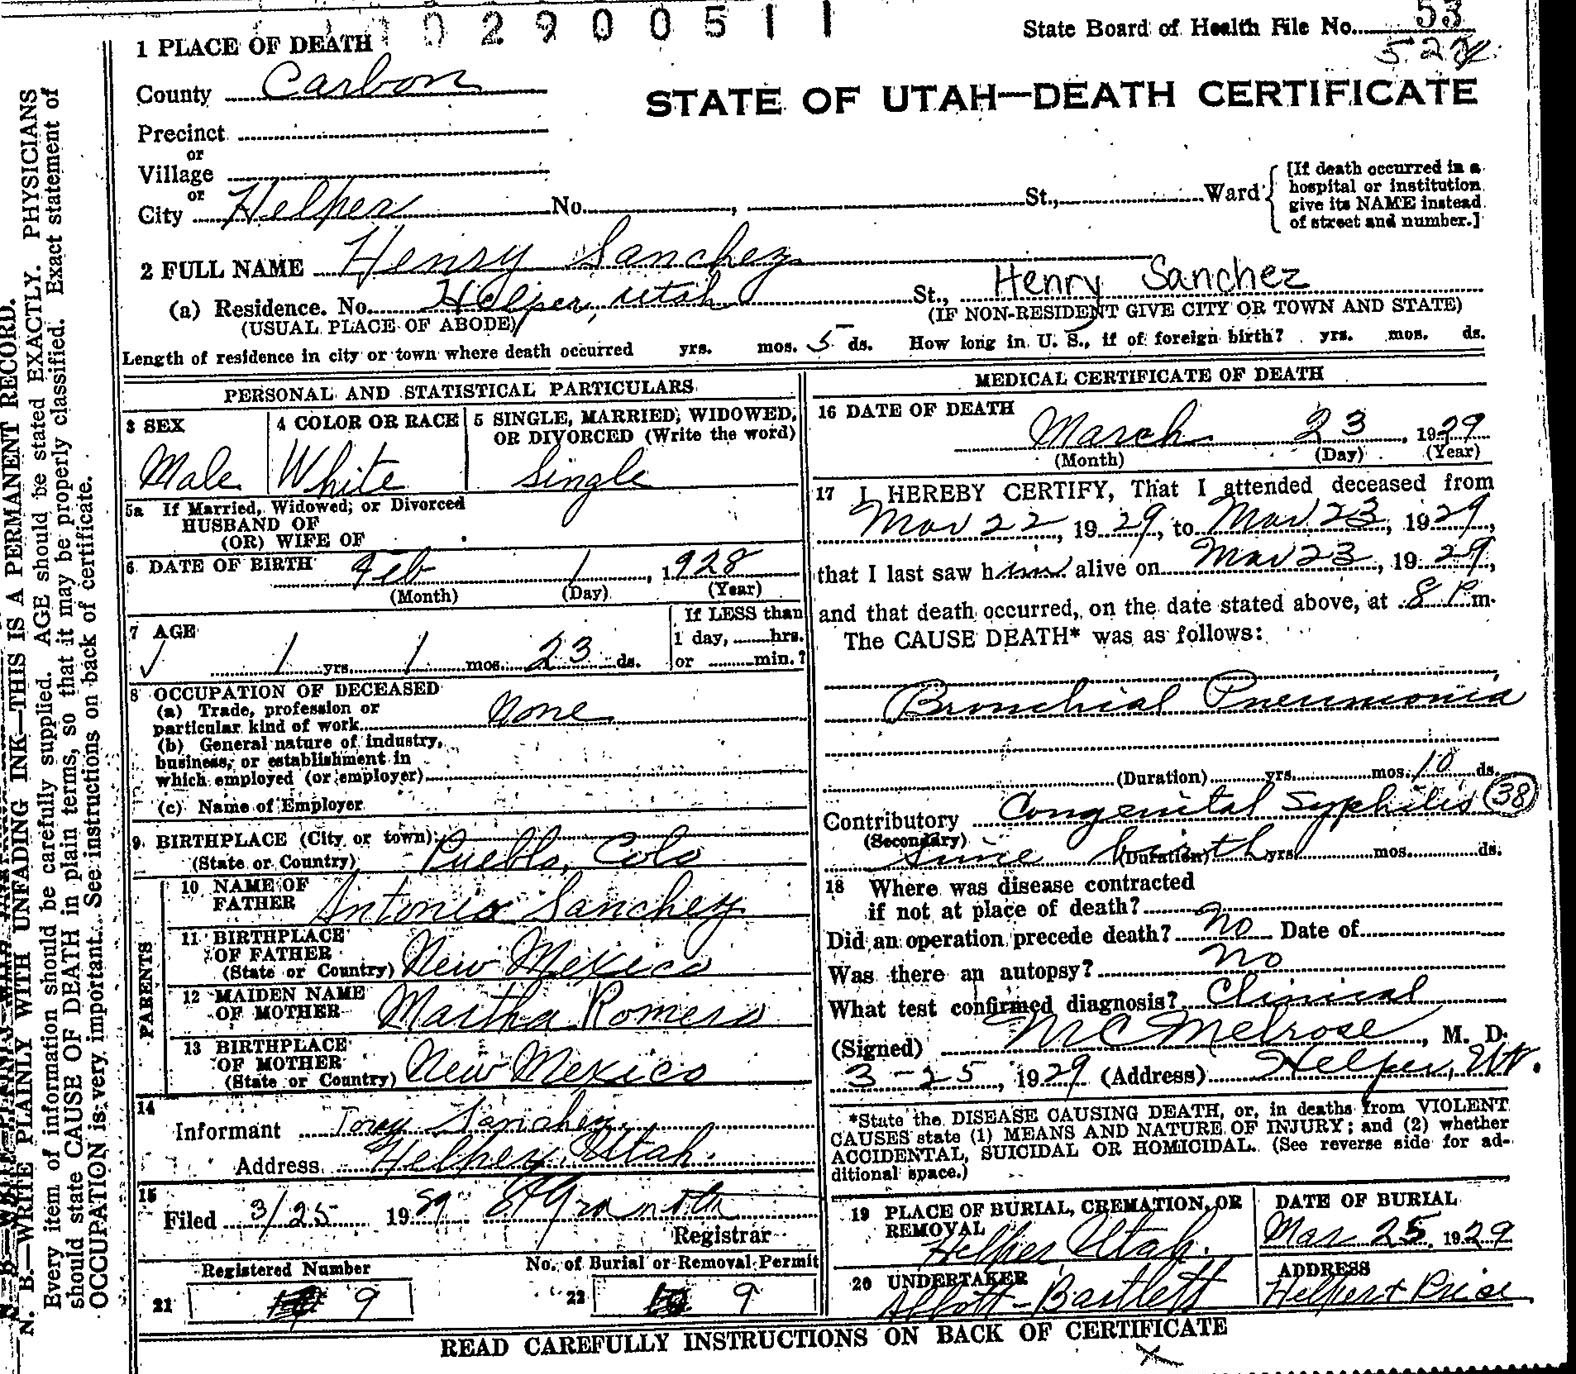 02900511
State Board of Health File No. 53
1 PLACE OF DEATH
County Carbon
STATE OF UTAH—DEATH CERTIFICATE
Precinct
or
Village
or
City Helper No. , St., Ward
[If death occurred in a
hospital or institution
give its NAME instead
of street and number.]
2 FULL NAME Henry Sanchez
Henry Sanchez
(a) Residence. No. Helper, Utah St.,
(USUAL PLACE OF ABODE)
(IF NON-RESIDENT GIVE CITY OR TOWN AND STATE)
Length of residence in city or town where death occurred yrs. mos. 5 ds. How long in U. S., if of foreign birth? yrs. mos. ds.
PERSONAL AND STATISTICAL PARTICULARS
3 SEX
Male
4 COLOR OR RACE
White
5 SINGLE, MARRIED, WIDOWED,
OR DIVORCED (Write the word)
Single
5a If Married, Widowed, or Divorced
HUSBAND OF
(OR) WIFE OF
6 DATE OF BIRTH Feb 1, 1928
(Month) (Day) (Year)
7 AGE
1 yrs. 1 mos. 23 ds.
If LESS than
1 day, hrs.
or min.?
8 OCCUPATION OF DECEASED
(a) Trade, profession or
particular kind of work None
(b) General nature of industry,
business, or establishment in
which employed (or employer)
(c) Name of Employer
9 BIRTHPLACE (City or town)
(State or Country) Pueblo, Colo
PARENTS
10 NAME OF
FATHER Antonio Sanchez
11 BIRTHPLACE
OF FATHER
(State or Country) New Mexico
12 MAIDEN NAME
OF MOTHER Martha Romero
13 BIRTHPLACE
OF MOTHER
(State or Country) New Mexico
14
Informant Tony Sanchez
Address Helper Utah
15
Filed 3/25 1929
Registrar
Registered Number
21 9
No. of Burial or Removal Permit
22 9
MEDICAL CERTIFICATE OF DEATH
16 DATE OF DEATH
March 23, 1929
(Month) (Day) (Year)
17 I HEREBY CERTIFY, That I attended deceased from
Mar 22, 1929, to Mar 23, 1929,
that I last saw him alive on Mar 23, 1929,
and that death occurred, on the date stated above, at 8 P m.
The CAUSE DEATH* was as follows:
Bronchial Pneumonia
(Duration) yrs. mos. 10 ds.
Contributory Congenital Syphilis 38
(Secondary)
Since birth (Duration) yrs. mos. ds.
18 Where was disease contracted
if not at place of death?
Did an operation precede death? No Date of
Was there an autopsy? No
What test confirmed diagnosis? Clinical
(Signed) M C Melrose, M. D.
3-25, 1929 (Address) Helper, Ut.
*State the DISEASE CAUSING DEATH, or, in deaths from VIOLENT
CAUSES state (1) MEANS AND NATURE OF INJURY; and (2) whether
ACCIDENTAL, SUICIDAL OR HOMICIDAL. (See reverse side for ad-
ditional space.)
19 PLACE OF BURIAL, CREMATION, OR
REMOVAL
Helper Utah.
DATE OF BURIAL
Mar 25 1929
20 UNDERTAKER
Abbott-Bartlett
ADDRESS
Helper & Price
READ CAREFULLY INSTRUCTIONS ON BACK OF CERTIFICATE
N. B.—WRITE PLAINLY WITH UNFADING INK—THIS IS A PERMANENT RECORD.
Every item of information should be carefully supplied. AGE should be stated EXACTLY. PHYSICIANS
should state CAUSE OF DEATH in plain terms, so that it may be properly classified. Exact statement of
OCCUPATION is very important. See instructions on back of certificate.